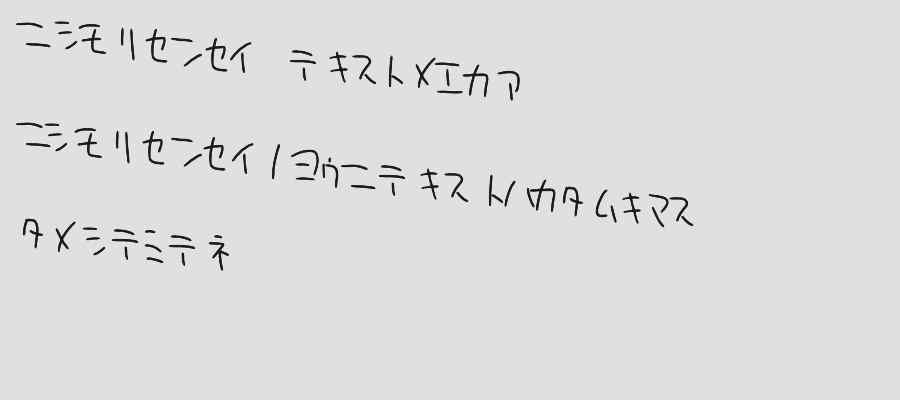 ニシモリセンセイ テキストメエカア
ニシモリセンセイノヨウニテキストハカタムキマス
タメシテミテネ